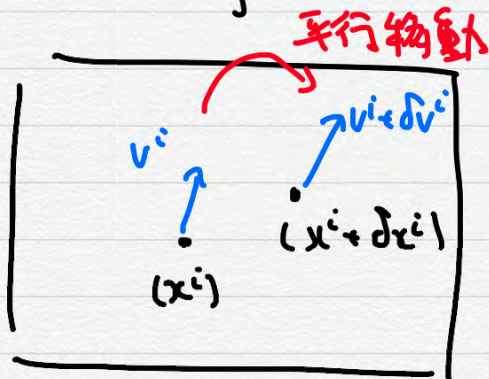 平行移動
vⁱ
vⁱ+δvⁱ
(xⁱ+δxⁱ)
(xⁱ)